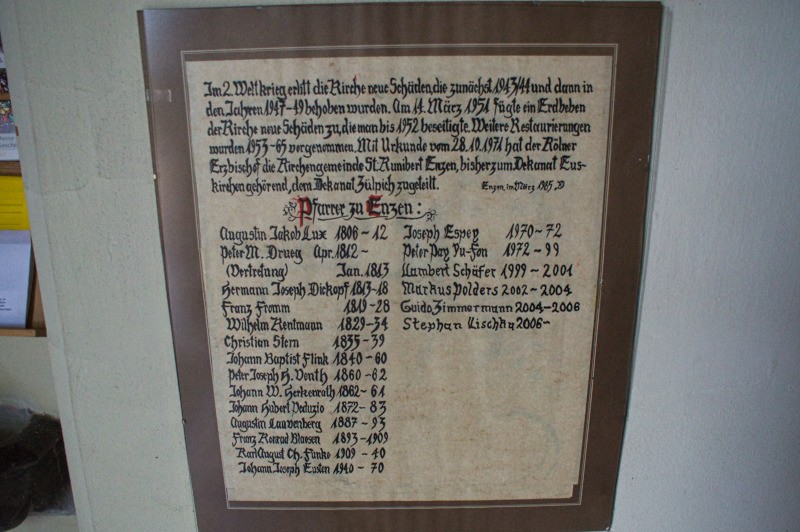 Im 2. Weltkrieg erlitt die Kirche neue Schäden, die zunächst 1943/44 und dann in
den Jahren 1947-49 behoben wurden. Am 14. März 1951 fügte ein Erdbeben
der Kirche neue Schäden zu, die man bis 1952 beseitigte. Weitere Restaurierungen
wurden 1953-65 vorgenommen. Mit Urkunde vom 28.10.1971 hat der Kölner
Erzbischof die Kirchengemeinde St. Kunibert Enzen, bisher zum Dekanat Eus-
kirchen gehörend, dem Dekanat Zülpich zugeteilt.
Enzen, im März 1985
Pfarrer zu Enzen:
Augustin Jakob Lux 1806-12
Peter M. Drueg Apr. 1812-
(Vertretung) Jan. 1813
Hermann Joseph Dickopf 1813-18
Franz Fromm 1819-28
Wilhelm Kentmann 1829-34
Christian Stern 1835-39
Johann Baptist Flink 1840-60
Peter Joseph H. Venth 1860-62
Johann W. Herkenrath 1862-
Johann Hubert 1872-83
Augustin Lauvenberg 1887-93
Franz Konrad Blaesen 1893-1909
Karl August Ch. Funke 1909-40
Johann Joseph 1940-70
Joseph Espey 1970-72
Peter Pay Yu-Fon 1972-99
Lambert Schäfer 1999-2001
Markus Polders 2002-2004
Guido Zimmermann 2004-2006
Stephan Lischka 2006-